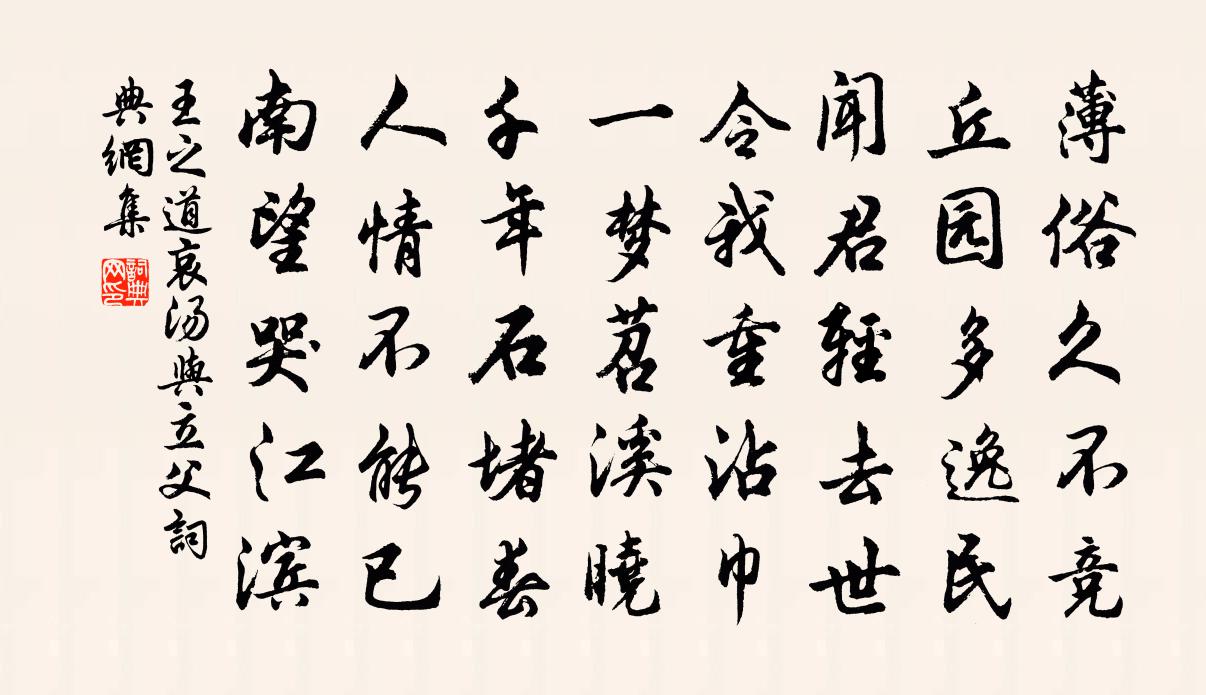 薄俗久不竞
丘园多逸民
闻君轻去世
令我重沾巾
一梦苕溪晓
千年石堵春
人情不能已
南望哭江滨
王之道哀汤與立父詞
典網集
詞典网印